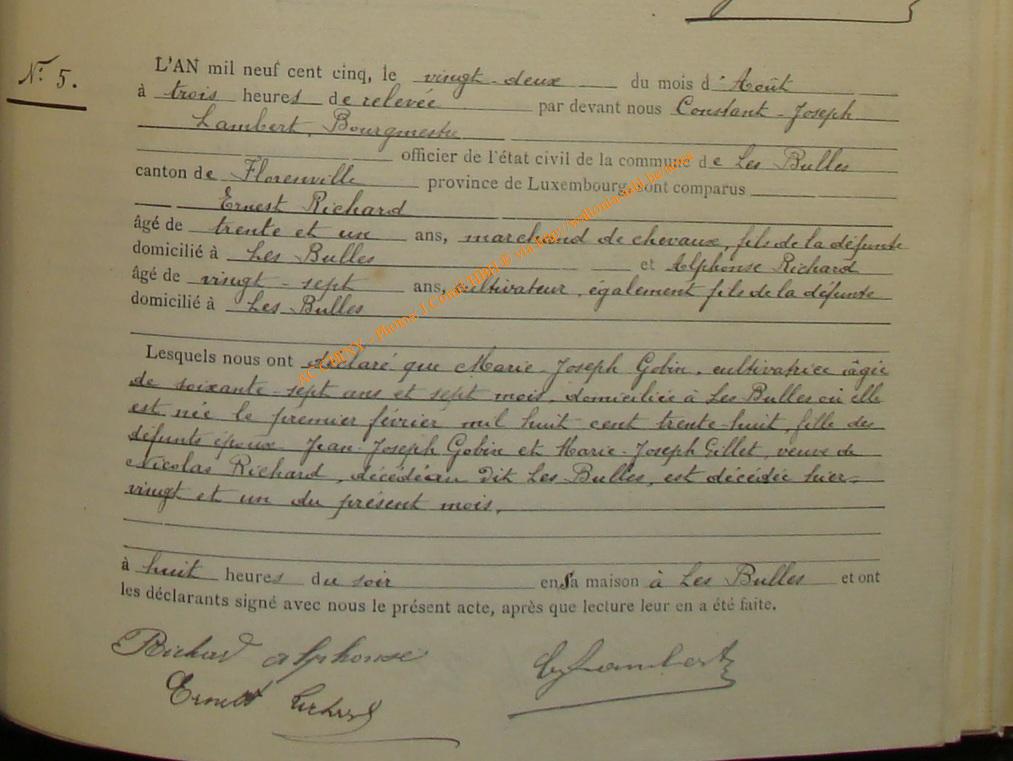 N.º 5.
L'AN mil neuf cent cinq, le vingt-deux du mois d'Août
à trois heures de relevée par devant nous Constant-Joseph
Lambert, Bourgmestre
officier de l'état civil de la commune de Les Bulles
canton de Florenville province de Luxembourg, sont comparus
Ernest Richard
âgé de trente et un ans, marchand de chevaux, fils de la défunte
domicilié à Les Bulles et Alphonse Richard
âgé de vingt-sept ans, cultivateur, également fils de la défunte
domicilié à Les Bulles
Lesquels nous ont déclaré que Marie-Joseph Gobin, cultivatrice âgée
de soixante-sept ans et sept mois, domiciliée à Les Bulles où elle
est née le premier février mil huit cent trente-huit, fille des
défunts époux Jean-Joseph Gobin et Marie-Joseph Gillet, veuve de
Nicolas Richard, décédé au dit Les Bulles, est décédée hier,
vingt et un du présent mois,
à huit heures du soir en sa maison à Les Bulles et ont
les déclarants signé avec nous le présent acte, après que lecture leur en a été faite.
Richard alphonse
Ernest Richard
Lambert